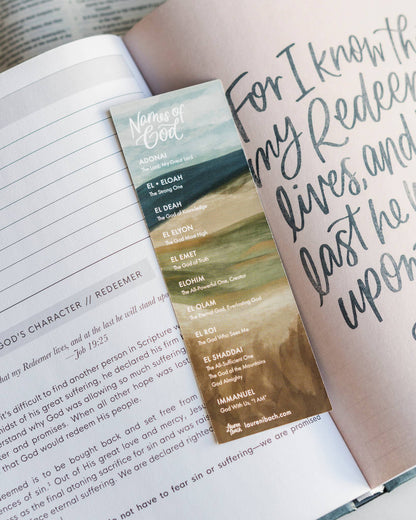 Names of
God
ADONAI
The Lord, My Great Lord
EL • ELOAH
The Strong One
EL DEAH
The God of Knowledge
EL ELYON
The God Most High
EL EMET
The God of Truth
ELOHIM
The All-Powerful One, Creator
EL OLAM
The Eternal God, Everlasting God
EL ROI
The God Who Sees Me
EL SHADDAI
The All-Sufficient One
The God of the Mountains
God Almighty
IMMANUEL
God With Us, "I AM"
lauren ibach
laurenibach.com
GOD'S CHARACTER // REDEEMER
that my Redeemer lives, and at the last he will stand upon
—Job 19:25
it's difficult to find another person in Scripture w
midst of his great suffering, he declared his firm
understand why God was allowing so much suffering
and promises. When all other hope was lost
that God would redeem His people.
deemed is to be bought back and set free from
of sin: Out of His great love and mercy, Jesus
as the final atoning sacrifice for sin and was raised
eternal suffering. We are declared right
not have to fear sin or suffering—we are promised
For I know tha
my Redeem
lives, and
last he
upon